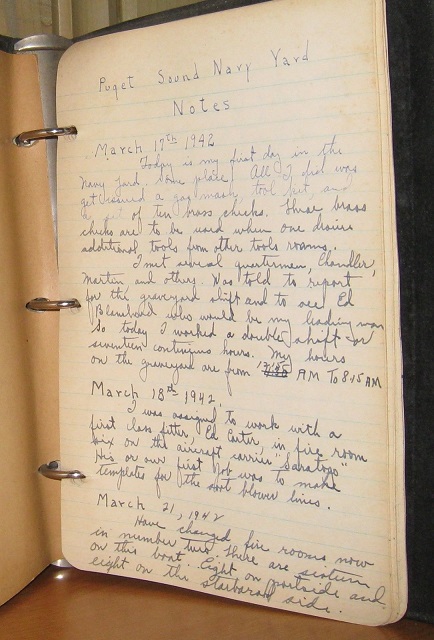 Puget Sound Navy Yard
Notes
March 17th 1942
Today is my first day in the
Navy Yard. Some place! All I did was
get issued a gas mask, tool kit, and
a set of ten brass checks. These brass
checks are to be used when one desires
additional tools from other tools rooms.
I met several quartermen, Chandler,
Martin and others. Was told to report
for the graveyard shift and to see Ed
Blanchard who would be my leading man
So today I worked a double shift or
seventeen continuous hours. My hours
on the graveyard are from 12:45 AM TO 8:15 AM
March 18th 1942.
I was assigned to work with a
first class fitter, Ed Carter, in fire room
six on the aircraft carrier "Saratoga"
His or our first job was to make
templates for the soot blower lines.
March 21, 1942
Have changed fire rooms now
in number two. There are sixteen
on this boat. Eight on portside and
eight on the starboard side.